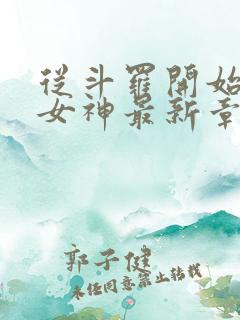 從斗羅開始
女神最新章
郭子健
未經同意禁止轉載